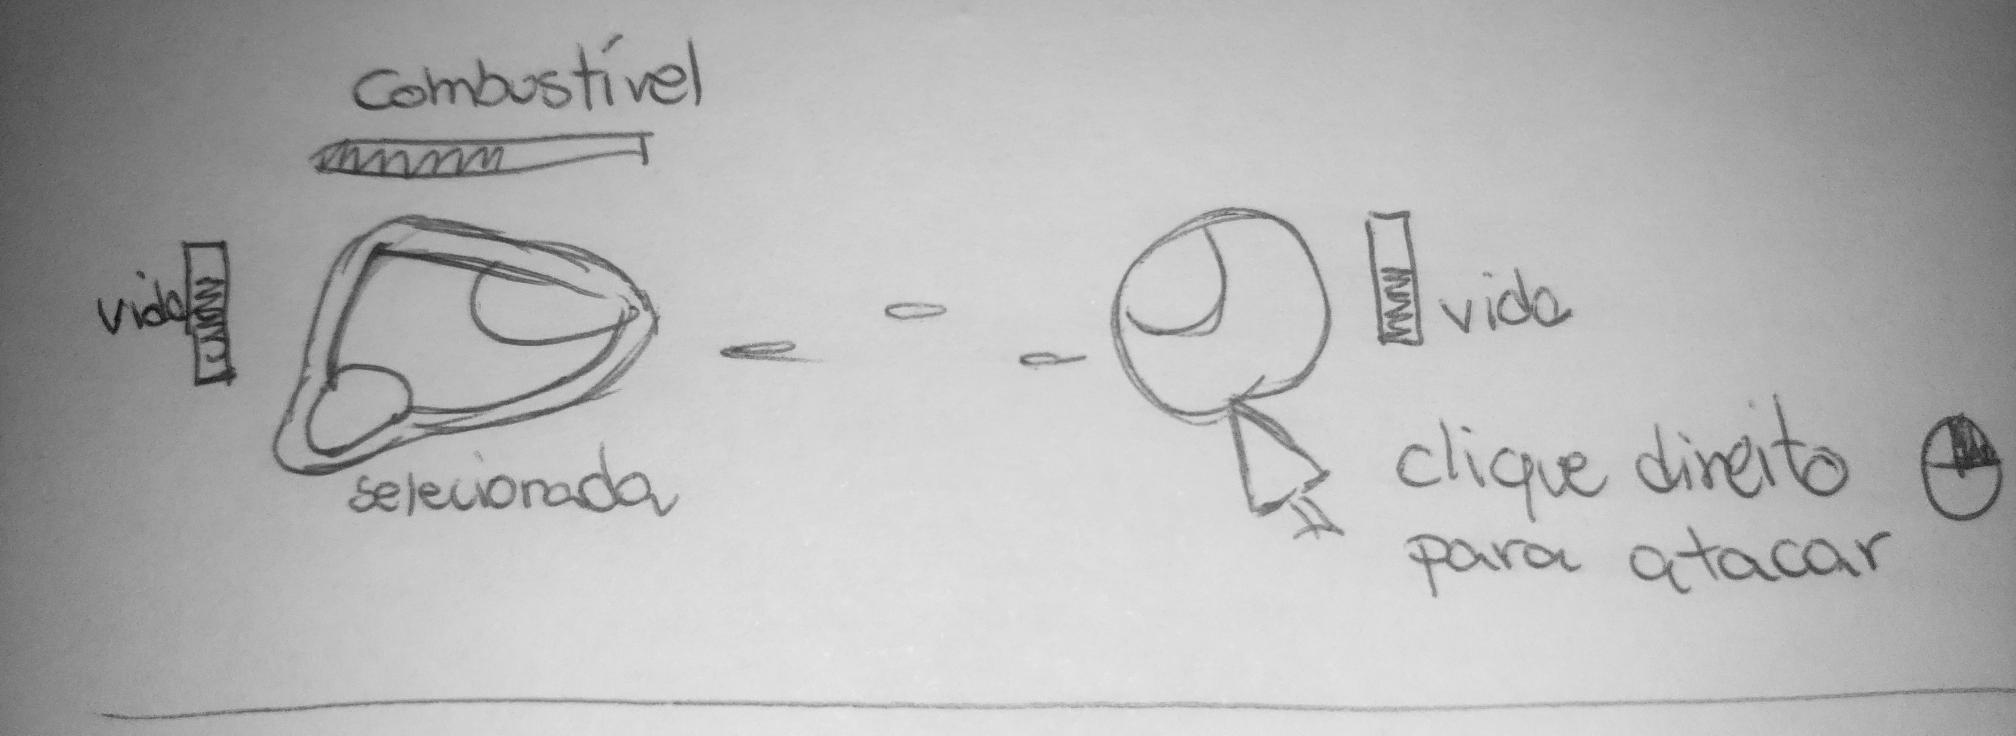 combustível
vida
vida
selecionada
clique direito
para atacar